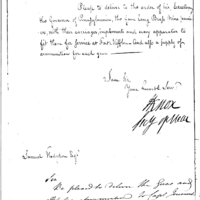 Please to deliver to the order of his Excellency
the Governor of Pennsylvania, the four long Brass Nine pound-
ers, with their carriages, implements and every apparatus to
fit them for service at Fort Mifflin and also a supply of
ammunition for each gun
I am Sir
Your humble Serv
H Knox
Secy of War
Samuel Hodgdon Esqr
Sir
Be pleased to deliver the Guns and